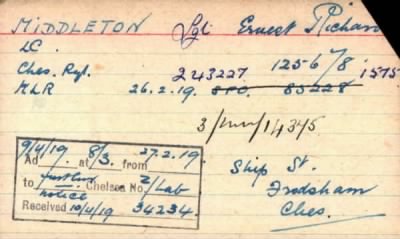 MIDDLETON Sgt Ernest Richard
LC.
Ches. Rgt. 243227 12567/8 1575
KLR 26.2.19. SPO. 85228
3/MM/14345
9/4/19 27.2.19.
Ad at 8/3. from
to further Chelsea No. 2/Lab
notice
Received 10/4/19 34234.
Ship St.
Frodsham
Ches.